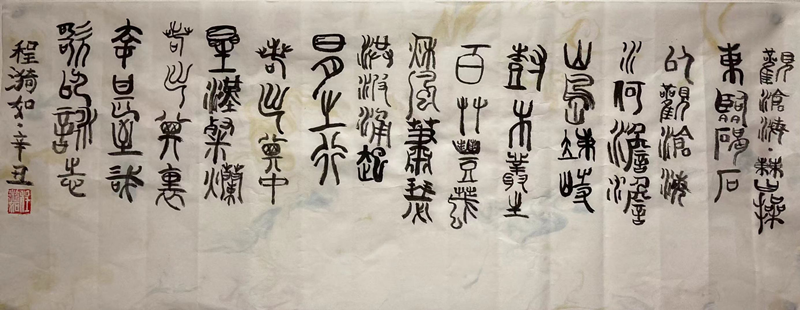 觀滄海 曹操
東臨碣石
以觀滄海
水何澹澹
山島竦峙
樹木叢生
百艸豐茂
秋風蕭瑟
洪波涌起
日月之行
若出其中
星漢粲爛
若出其裏
幸甚至哉
歌以詠志
程漪如 辛丑